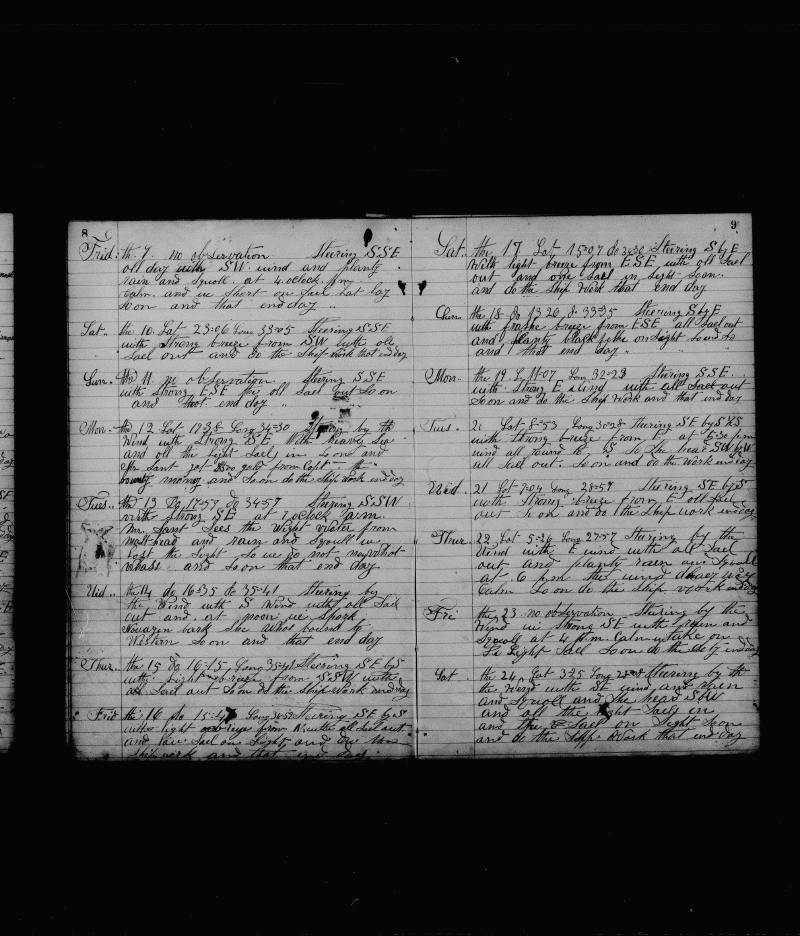 8
Frid. the 9. no observation Steering SSE
all day with SW. wind and planty
rain and squall. at 4. oClock p.m.
Calm. and in short on Sail
soon and that end day "
Sat. the 10. Lat 23-06 Long 35-05 Steering S.S.E
with strong breeze from SW with all
Sail out and do the Ship work that end day
Sun. the 11. no observation Steering SSE
with strong ESE all Sail out So on
and that end day "
Mon. the 12 Lat Long 34-30 by th
Wind with strong SE With heavey Sea
and all the light Sail in so on and
Mr Sant got gold from Capt the
bounty money and Soon do the Ship work end day
Tues. the 13 Do 17-53 do 34-57 Steering SSW
with Strong SE at 7 oClock a.m.
Mr Sant Sees the Wight Water from
mast head and rain and squall in
lost the Sight So we do not
and soon that end day
Wid. the 14 do 16-35 do 35-41 Steering by
the Wind with S Wind with all Sail
out and at noon we Spork
bark She bound to
Western So on and that end day
Thur. the 15 Do 16-15 Long 35-41 Steering SE by S
with light breeze from SSW with
all Sail out Soon do the Ship Work end day
Frid the 16 do 15-47 Long Steering SE by S
with light from with all Sail out
and Sail one Light and do the
Ship work and that end day
9
Sat. the 17 Lat 15-07 do Steering S by E
With light breeze from ESE with all Sail
out and one Sail in Sight Soon.
and do the Ship Work that end day
the 18 do 13 26 33-35 Steering S by E
with breeze from ESE all Sail out
and planty black fishe on Sight So on to
and that end day "
Mon- the 19 L 11-07 Long 32-29 Steering SSE.
with Strong E wind with all Sail out
So on and do the Ship Work and that end day
Tues. 21 Lat 8-53 Long 30-28 Steering SE by S
with strong breeze from E at 5-30 pm
wind all round to So the head SW by W
all Sail out. So on and do the Work end day
Wid. 21 Lat 7-04 Long 28-57 Steering SE by S
with strong breeze from E all Sail
out so on and do the Ship work end day
Thur 22 Lat 5-26 Long 27-57 Steering by the
Wind with E wind with all Sail
out and planty rain and Squall
at 6 p.m the wind way
Calm So on do the Ship Work end day
Fri the 23 no observation Steering by the
Wind in Strong SE with rain and
Squall at 4 p.m. Calm take on
Light Sail Soon do the end day
Sat the 24 Lat 3 25 Long Steering by th
the Wind with SE wind and rain
and Squall and the head SSW
and all the light Sails in
and Sail on Sight Soon
and do the Ship Work that end day